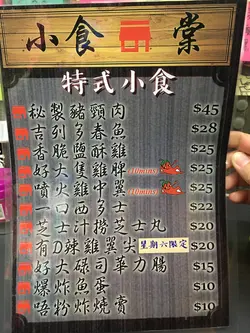 小食棠
特式小食
秘製豬頸肉 $45
吉列多春魚 $28
香脆鹽酥雞 $25
好大隻雞脾 (10mins) $25
噴火中雞翼 (10mins) $25
一口西多士 $22
芝士汁撈芝士丸 $20
有D辣雞翼尖 星期六限定 $20
好大碌司華力腸 $15
爆炸魚蛋 $10
唔粉炸燒賣 $10